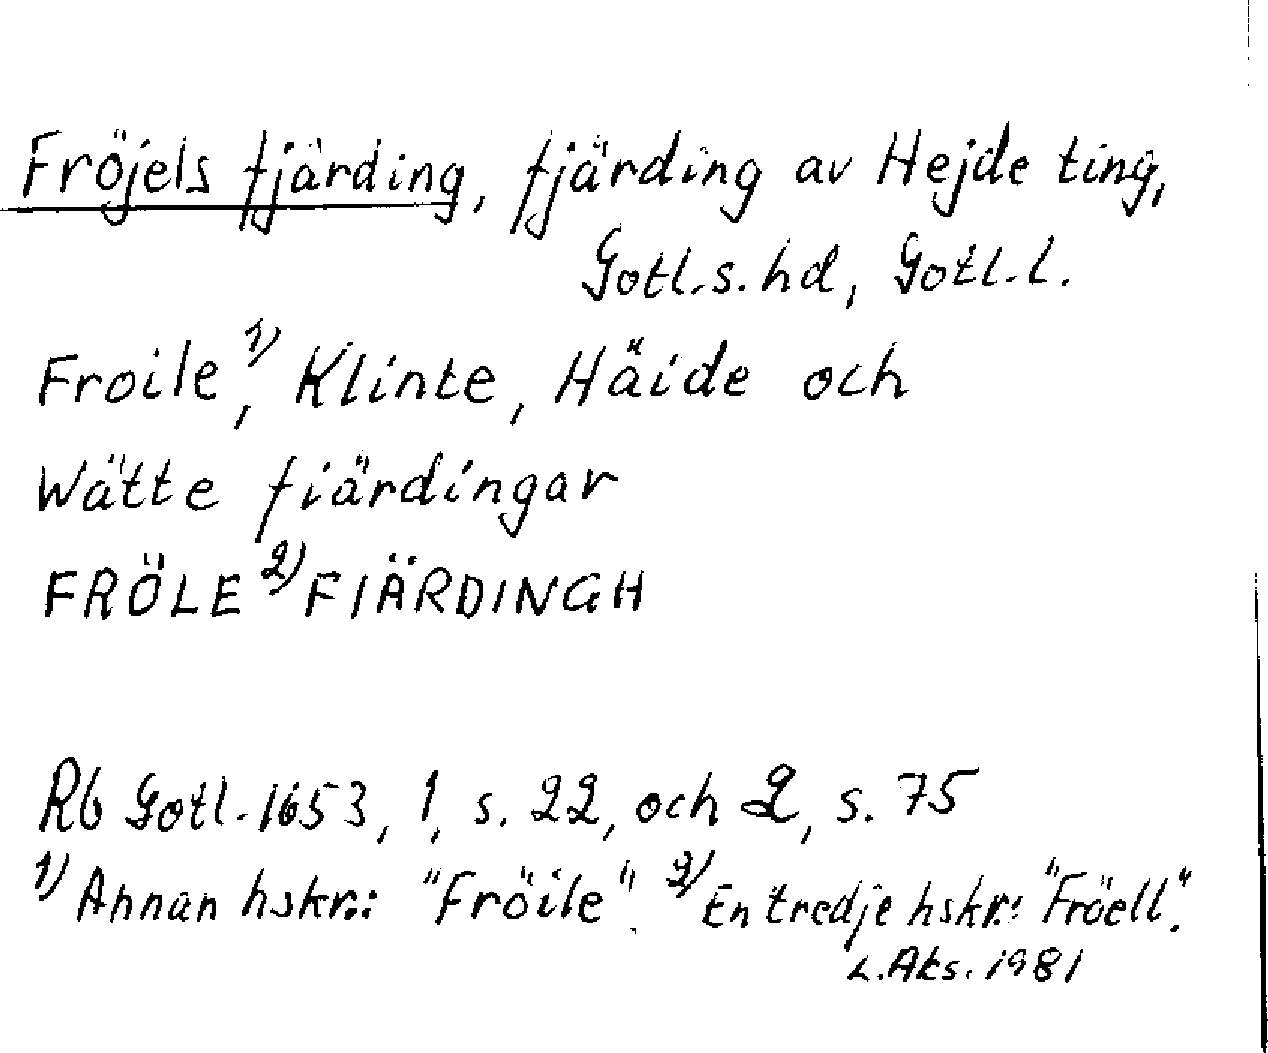 Fröjels fjärding, fjärding av Hejde ting,
Gotl.s.hd, Gotl.l.
Froile,¹⁾ Klinte, Häide och
Wätte fiärdingar
FRÖLE ²⁾ FIÄRDINGH
Rb Gotl. 1653, 1, s. 22, och 2, s. 75
¹⁾ Annan hskr.: "Fröile". ²⁾ En tredje hskr: "Fröell".
L. Aks. 1981